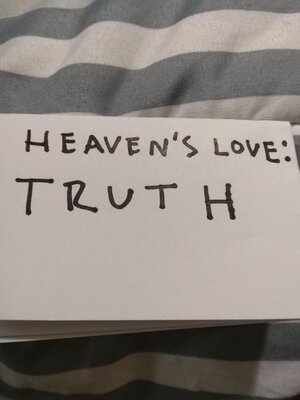 HEAVEN'S LOVE:
TRUTH